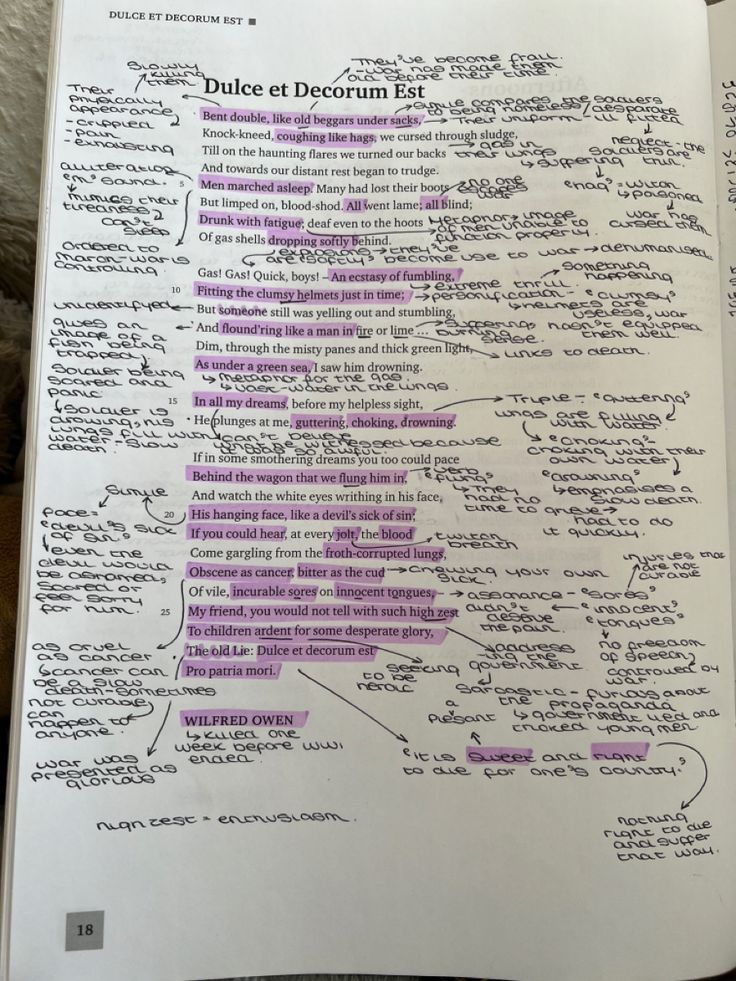 DULCE ET DECORUM EST
Slowly
killing
them
They've become frail
- war has made them
old before their time.
Dulce et Decorum Est
Their
physically
appearance
- crippled
- pain
- exhausting
Bent double, like old beggars under sacks,
simile compares the soldiers
to being homeless/desparate
Their uniform - ill fitted
Knock-kneed, coughing like hags, we cursed through sludge,
gas in
their lungs
suffering
neglect - the
soldiers are
thin.
Till on the haunting flares we turned our backs
And towards our distant rest began to trudge.
"hag" = witch
poisoned
war has
cursed them
alliteration
"m" sound.
mimics their
tiredness
can't
sleep
ordered to
march - war is
controlling
5
Men marched asleep. Many had lost their boots
no one
escapes
war
But limped on, blood-shod. All went lame; all blind;
Drunk with fatigue; deaf even to the hoots
Metaphor - image
of men unable to
function properly.
Of gas shells dropping softly behind.
explosions
are "softly"
they've
become use to war
dehumanised
Gas! GAS! Quick, boys! – An ecstasy of fumbling,
extreme thrill.
something
happening
10
Fitting the clumsy helmets just in time;
personification - "clumsy"
helmets are
useless, war
hasn't equipped
them well.
unidentifyed
But someone still was yelling out and stumbling,
And flound'ring like a man in fire or lime ...
suffering
burn
sense.
gives an
image of a
fish being
trapped,
soldier being
scared and
panic
soldier is
drowning, his
lungs fill with
water - slow
death.
Dim, through the misty panes and thick green light,
links to death.
As under a green sea, I saw him drowning.
metaphor for the gas.
vast - water in the lungs.
15
In all my dreams, before my helpless sight,
He plunges at me, guttering, choking, drowning.
Triple - "guttering"
lungs are filling
with water.
"choking" -
choking with their
own water
"drowning"
emphasises a
slow death.
can't believe
what he witnessed because
it was so awful.
If in some smothering dreams you too could pace
Behind the wagon that we flung him in,
verb
"flung"
they
had no
time to grieve
had to do
it quickly.
And watch the white eyes writhing in his face,
Simile
20
His hanging face, like a devil's sick of sin;
face =
"devil's sick
of sin"
even the
devil would
be ashamed,
scared or
feel sorry
for him.
If you could hear, at every jolt, the blood
twitch
breath
Come gargling from the froth-corrupted lungs,
Obscene as cancer, bitter as the cud
chewing your own
sick.
injuries that
are not
curable
Of vile, incurable sores on innocent tongues,
assonance - "sores"
"innocent"
"tongues"
didn't
deserve
the pain.
no freedom
of speech,
controlled by
war.
25
My friend, you would not tell with such high zest
To children ardent for some desperate glory,
The old Lie: Dulce et decorum est
Pro patria mori.
as cruel
as cancer
cancer can
be a slow
death - sometimes
not curable,
can
happen to
anyone.
seeking
to be
heroic
addressing the
government
sarcastic - furious about
the propaganda
government lied and
tricked young men
WILFRED OWEN
killed one
week before WW1
ended.
a
plesant
"it is sweet and right
to die for one's country."
war was
presented as
glorious
nothing
right to die
and suffer
that way.
high zest = enthusiasm.
18